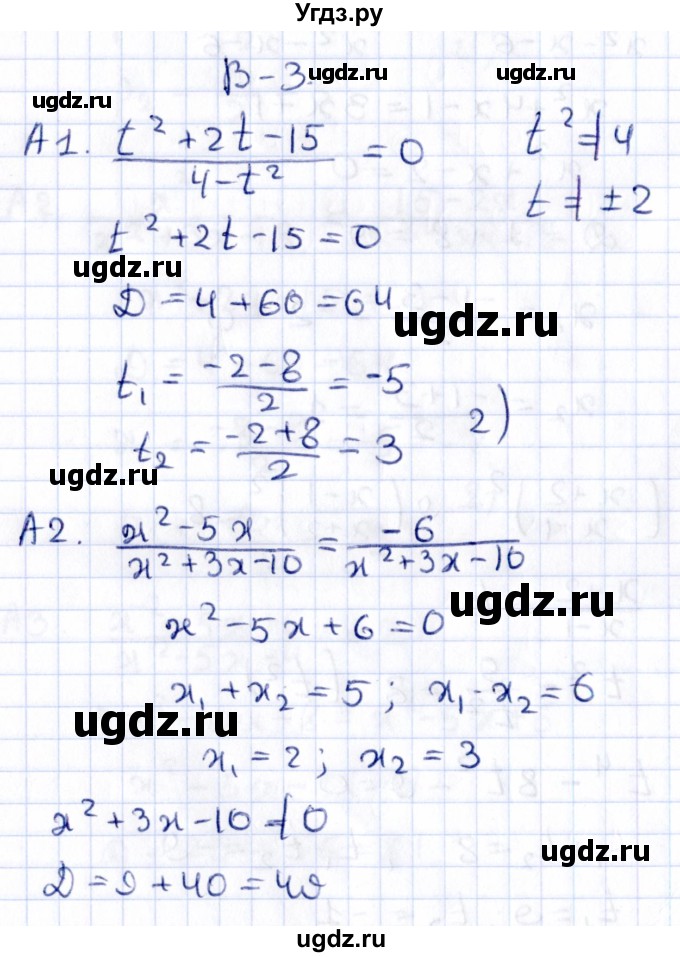 Угдз.ру
В-3. ugdz.ru ugdz.ru
ugdz.ru
А1. (t² + 2t - 15)/(4 - t²) = 0 t² ≠ 4
t ≠ ±2
t² + 2t - 15 = 0
ugdz.ru
Д = 4 + 60 = 64
ugdz.ru
t₁ = (-2 - 8)/2 = -5
2)
t₂ = (-2 + 8)/2 = 3
ugdz.ru
А2. (x² - 5x)/(x² + 3x - 10) = -6/(x² + 3x - 10)
ugdz.ru
x² - 5x + 6 = 0
x₁ + x₂ = 5; x₁ · x₂ = 6
ugdz.ru
x₁ = 2; x₂ = 3
x² + 3x - 10 ≠ 0
ugdz.ru
Д = 9 + 40 = 49
ugdz.ru